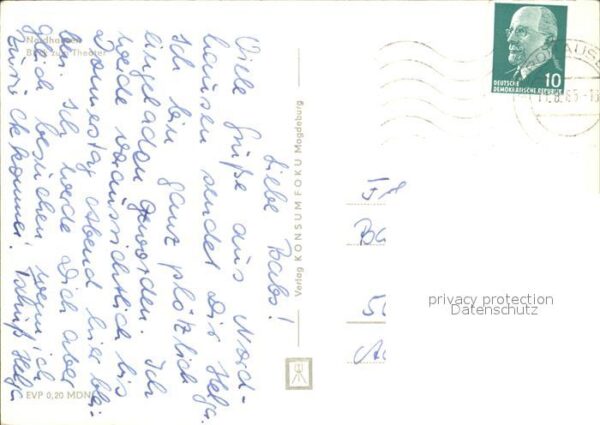 Nordhausen
Blick zum Theater
Liebe Babs!
Viele Grüße aus Nord-
hausen sendet Dir Helga.
Ich bin ganz plötzlich
eingeladen geworden. Ich
werde voraussichtlich bis
Donnerstag abend hier blei-
ben. Ich werde Dich aber
gleich besuchen, wenn ich
zurückkomme! Tschüß Helga
EVP 0,20 MDN
Verlag KONSUM FOKU Magdeburg
DEUTSCHE
DEMOKRATISCHE REPUBLIK
10
Ba
privacy protection
Datenschutz